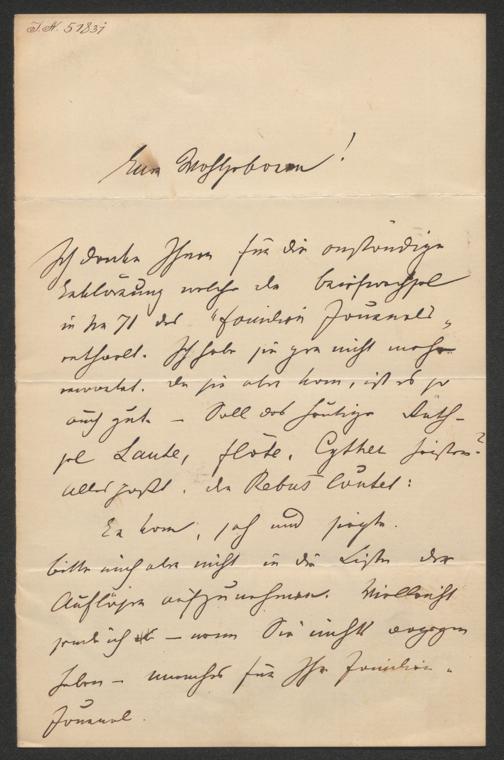 I.N. 51831
Euer Wohlgeboren!
Ich danke Ihnen für die anständige
Erklärung welche der Briefwechsel
in No 71 des "Familien Journals"
enthaelt. Ich habe sie gar nicht mehr
erwartet. da sie aber kam, ist es ja
auch gut – Soll das heutige Räth-
sel Laute, Flöte, Cyther heissen?
alles passt. der Rebus lautet:
Er kam, sah und siegte.
bitte mich aber nicht in die Listen der
Auflöser aufzunehmen. Vielleicht
sende ich – wenn Sie nichts dagegen
haben – manches für Ihr Familien-
Journal.